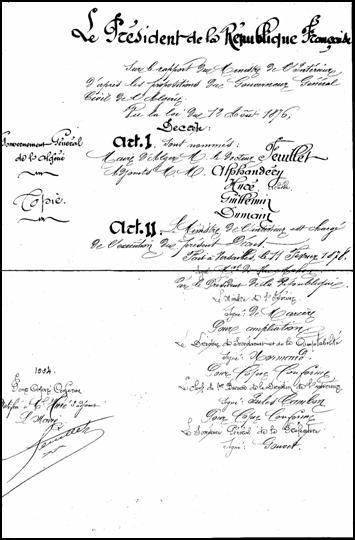 Le Président de la République Française
Sur le rapport du Ministre de l'Intérieur
d'après les propositions du Gouverneur Général
Civil de l'Algérie
Vu la loi du 12 Août 1876,
Décrète:
Gouvernement Général
de l'Algérie
Copie.
Art. I. Sont nommés:
Maire d'Alger M. le docteur Feuillet
Adjoints M.M. Alphandéry
Huré
Guillemin
Dumain
Art. II. Le Ministre de l'intérieur est chargé
de l'exécution du présent Décret.
Fait à Versailles, le 11 Février 1878.
Par le Président de la République.
Le Ministre de l'Intérieur
Signé: de Marcère
Pour ampliation
Le Directeur du Secrétariat et de la Comptabilité
Signé: Normand
Pour Copie Conforme
Le Chef du 1er Bureau de la Direction de l'Intérieur
Signé: Jules Cambon
Pour Copie Conforme
Le Secrétaire Général de la Préfecture
Signé:
1004.
Pour Copie Conforme
à Mr Huré adjoint
Le Maire
Feuillet